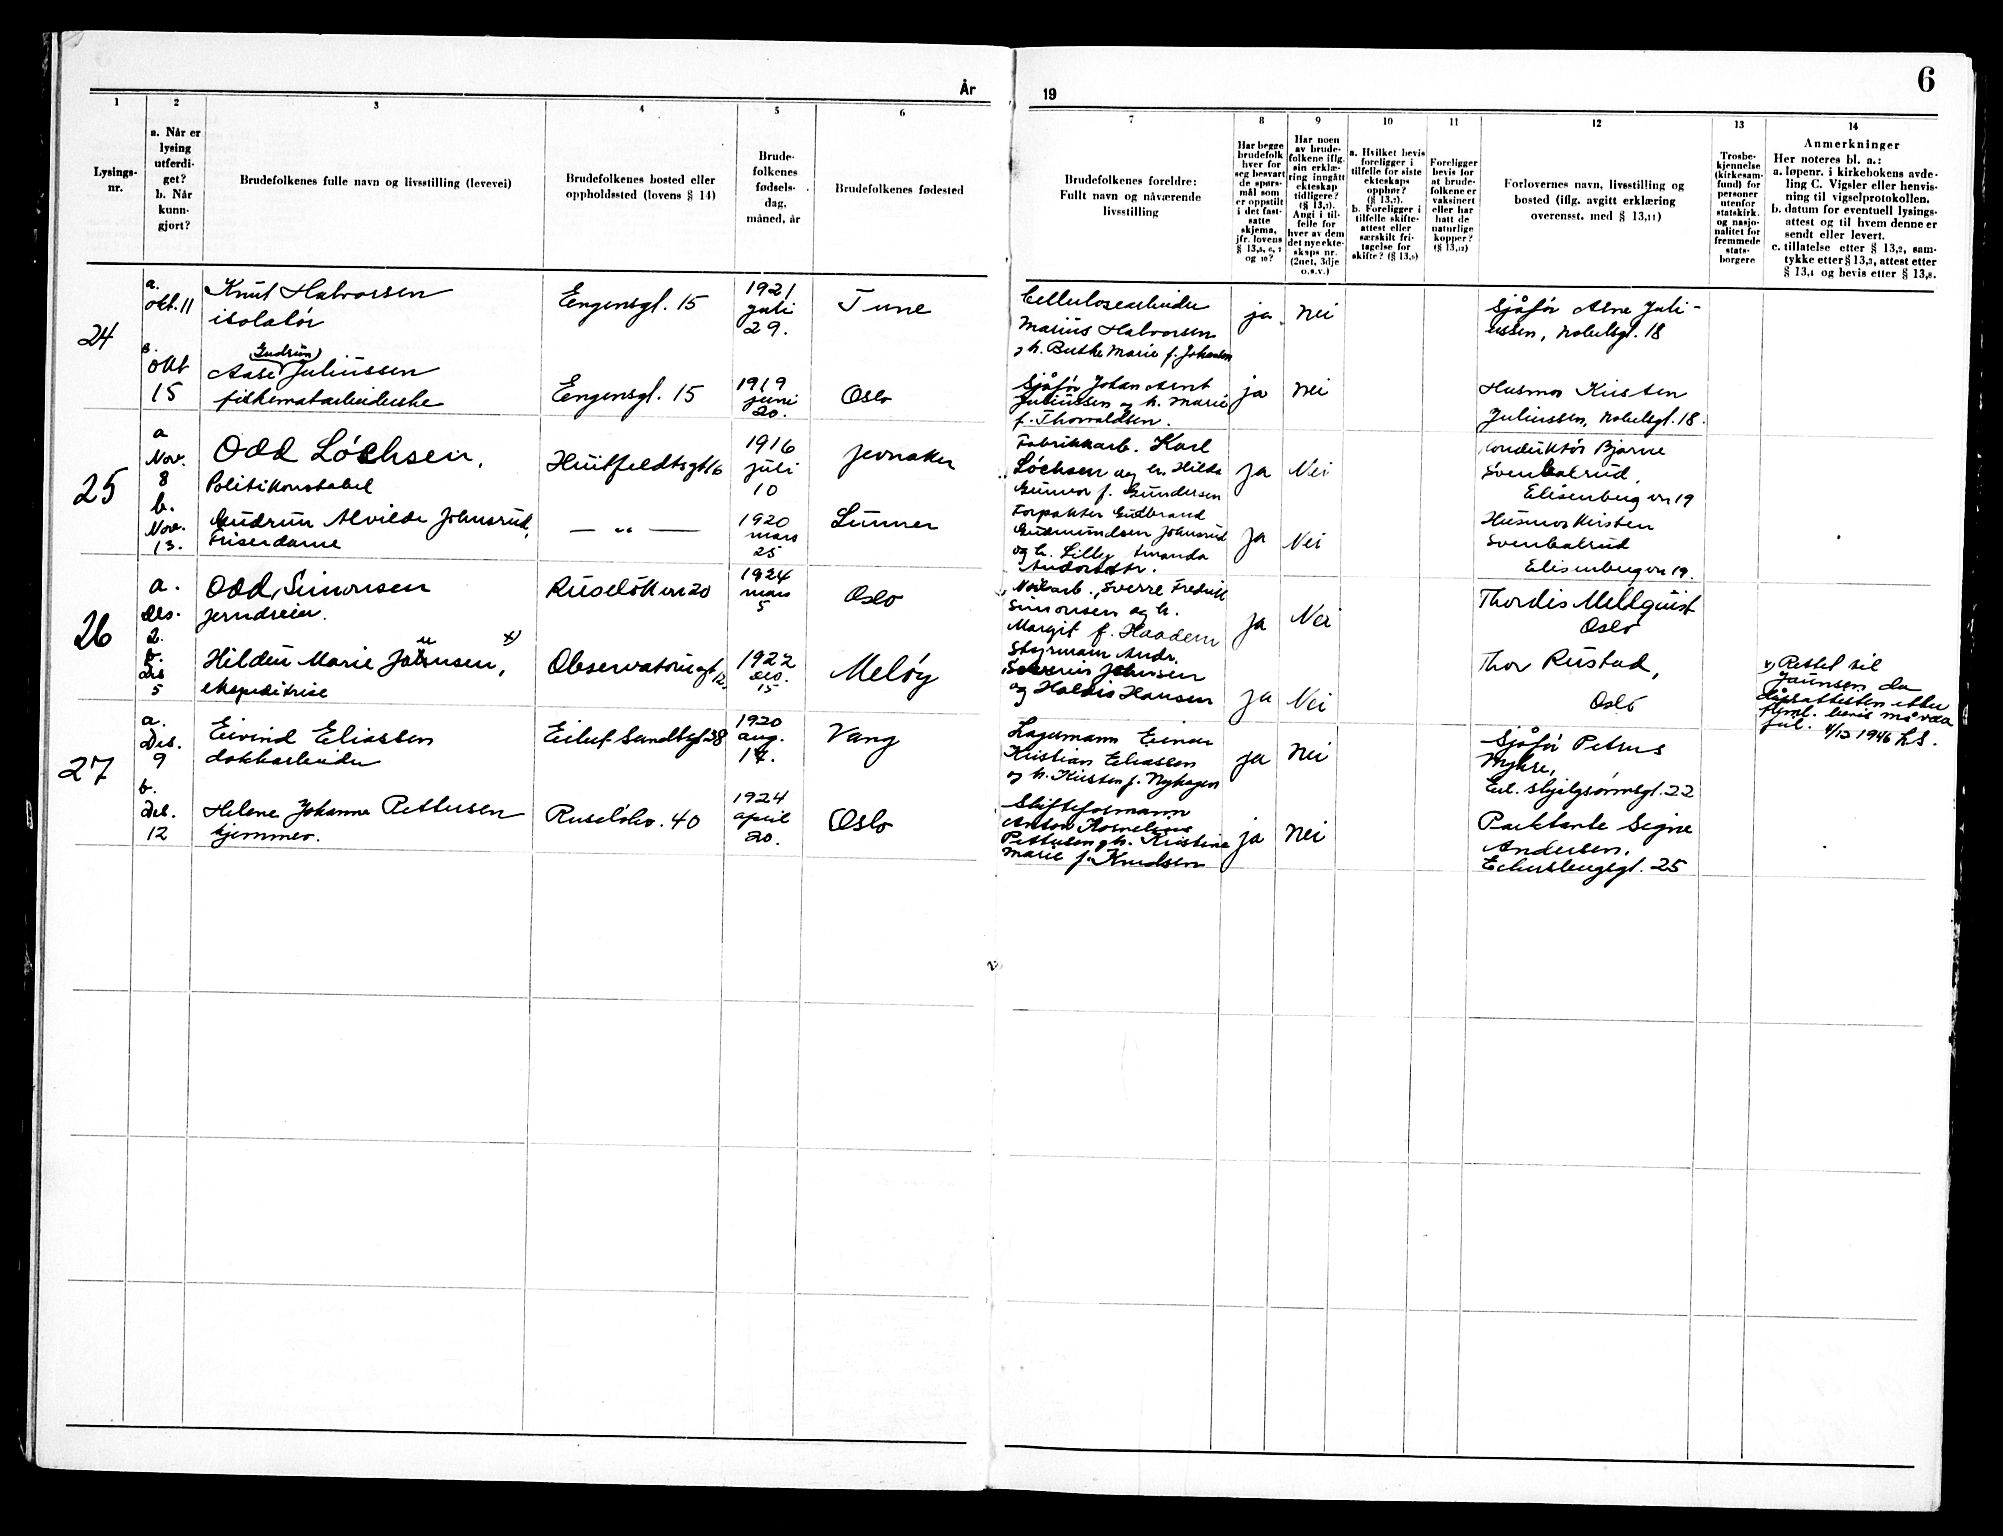 År
19
6
1
2
3
4
5
6
7
8
9
10
11
12
13
14
Lysings-
nr.
a. Når er
lysing
utferdi-
get?
b. Når
kunn-
gjort?
Brudefolkenes fulle navn og livsstilling (levevei)
Brudefolkenes bosted eller
oppholdssted (lovens § 14)
Brude-
folkenes
fødsels-
dag,
måned, år
Brudefolkenes fødested
Brudefolkenes foreldre:
Fullt navn og nåværende
livsstilling
Har begge
brudefolk
hver for
seg besvart
de spørs-
mål som
er oppstilt
i det fast-
satte
skjema,
jfr. lovens
§ 13,5, 6, 7
og 10?
Har noen
av brude-
folkene iflg.
sin erklæ-
ring inngått
ekteskap
tidligere?
(§ 13,7).
Angi i til-
felle for
hver av dem
det nye ekte-
skaps nr.
(2net, 3dje
o.s.v.)
a. Hvilket bevis
foreligger i
tilfelle for siste
ekteskaps
opphør?
(§ 13,7).
b. Foreligger i
tilfelle skifte-
attest eller
særskilt fri-
tagelse for
skifte? (§ 13,9)
Foreligger
bevis for
at brude-
folkene er
vaksinert
eller har
hatt de
naturlige
kopper?
(§ 13,12)
Forlovernes navn, livsstilling og
bosted (iflg. avgitt erklæring
overensst. med § 13,11)
Trosbe-
kjennelse
(kirkesam-
fund) for
personer
utenfor
statskirk.
og nasjo-
nalitet for
fremmede
stats-
borgere
Anmerkninger
Her noteres bl. a.:
a. løpenr. i kirkebokens avde-
ling C. Vigsler eller henvis-
ning til vigselprotokollen.
b. datum for eventuell lysings-
attest og til hvem denne er
sendt eller levert.
c. tillatelse etter § 13,2, sam-
tykke etter § 13,3, attest etter
§ 13,4 og bevis etter § 13,8.
24
a.
Okt. 11
Knut Halvorsen
isolatør
Engensgt. 15
1921
juli
29.
Tune
Cellulosearbeider
Marius Halvorsen
og h. Marie f. Johansen
ja
nei
Sjåfør Arne Juli-
ussen, Nobelsgt. 18
B.
Okt
15
(Gudrun)
Aase Juliussen
fiskematarbeiderske
Engensgt. 15
1919
juni
20.
Oslo
Sjåfør Johan Arnt
Juliussen og h. Marie
f. Thorvaldsen.
ja
nei
Husmor Kirsten
Juliussen, Nobelsgt. 18.
25
a
Nov.
8
Odd Löchsen,
Politikonstabel
Huitfeldtsgt 16
1916
juli
10
Jevnaker
Fabrikkarb. Karl
Löchsen og h. Hilda
Gunvor f. Gundersen
ja
Nei
Konduktør Bjarne
Svenbalrud,
Elisenberg vn 19
b.
Nov.
13.
Gudrun Alvilde Johnsrud,
Friserdame
— " —
1920
mars
25
Lunner
Forpakter Gudbrand
Gudmundsen Johnsrud
og h. Lilly Amanda
Ja
Nei
Husmor Kirsten
Svenbalrud
Elisenberg vn 19.
26
a.
Des.
2.
Odd, Simonsen
jerndreier.
Ruseløkvn 20
1924
mars
5
Oslo
Sverre Fredrik
Simonsen og h.
Margit f. Haadem
ja
Nei
Thordis Mellquist
Oslo
b.
Des
5
Hilden Marie Jaunsen, x)
ekspeditrise
Observatoriegt 12.
1922
Des.
15
Meløy
Styrmann Andr.
Severin Johnsen
og Haldis Hansen
ja
Nei
Thor Rustad,
Oslo
x) Rettet til
Jaunsen da
dåpsattesten etter
fhml. bevis må være
feil. 4/12 1946 L.S.
27
a.
Des.
9
Eivind Eliassen
dokkarbeider
Eilert Sundtsgt 38
1920
aug.
17.
Vang
Lagermann Einar
Kristian Eliassen
og h. Kirsten f. Nyhagen
ja
nei
Sjåfør Petrus
Myhre,
Erl. Skjalgssønnsgt. 22
b.
Des.
12
Helene Johanne Pettersen
hjemmev.
Ruseløkv. 40
1924
april
20.
Oslo
Skifteformann
Anton Kornelius
Pettersen og h. Kristine
Marie f. Knudsen
ja
nei
Pakktante Signe
Andersen,
Eckersbergsgt. 25